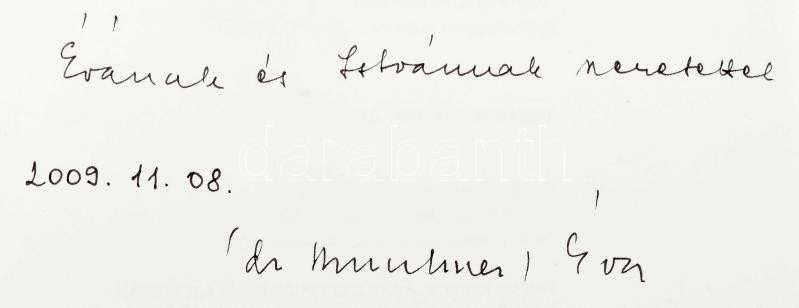 Évának és Istvánnak szeretettel
darabanth
2009. 11. 08.
(dr Munkner) Éva